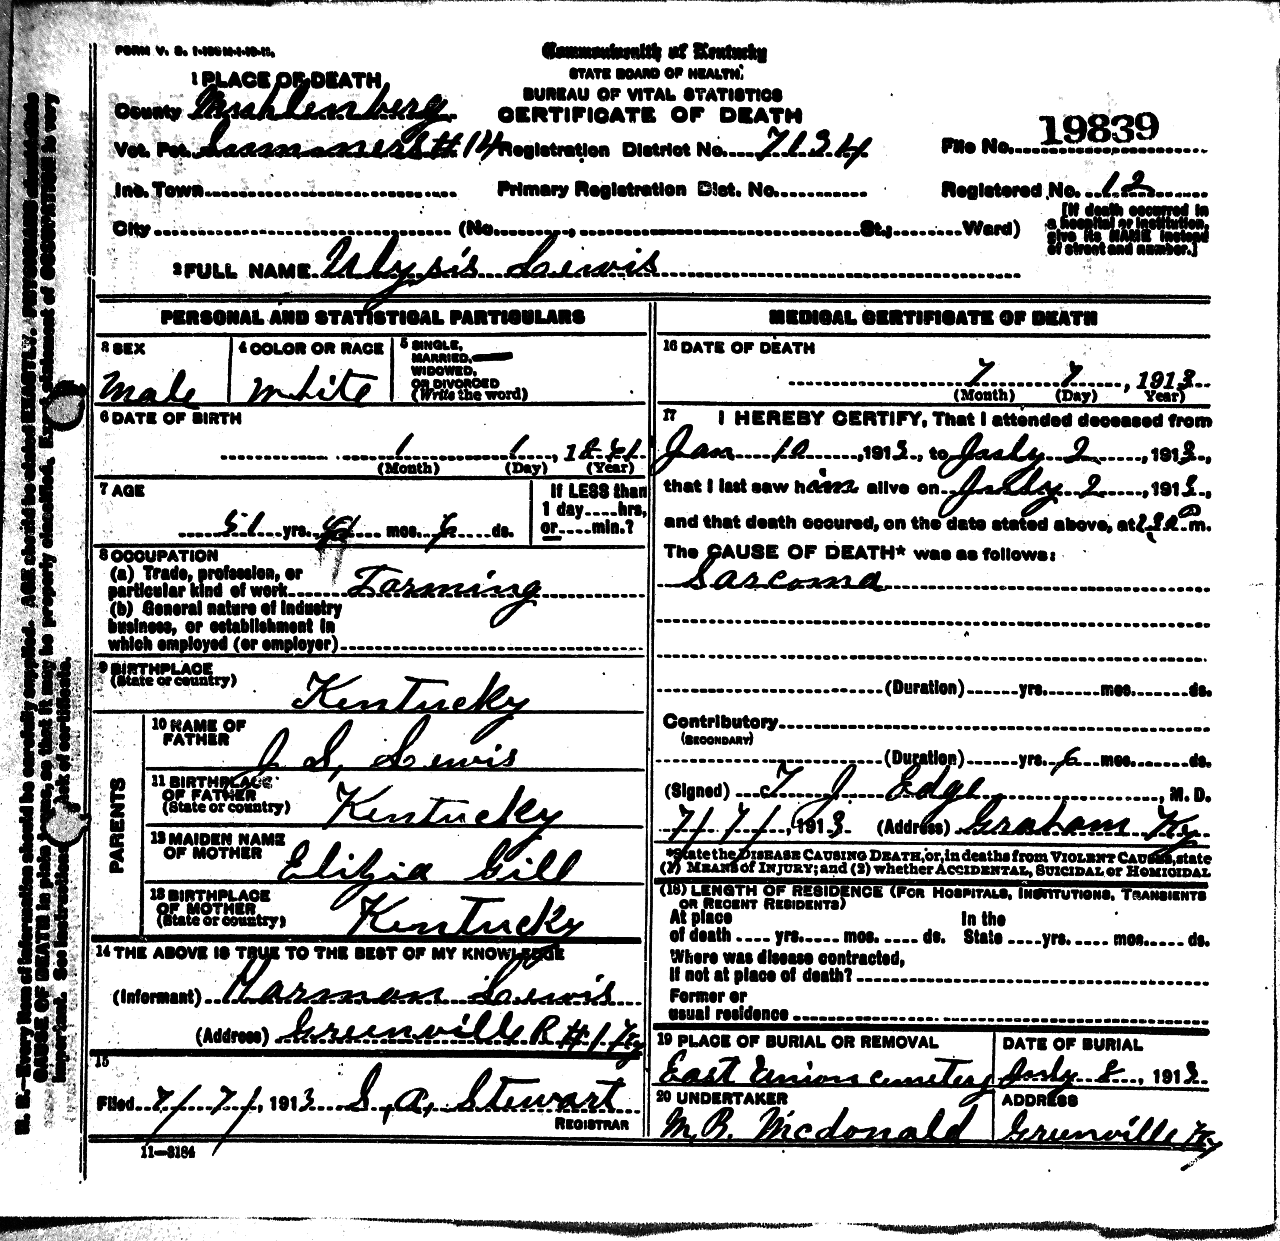 FORM V. S. 1-
Commonwealth of Kentucky
STATE BOARD OF HEALTH.
BUREAU OF VITAL STATISTICS
CERTIFICATE OF DEATH
1 PLACE OF DEATH,
County Muhlenberg.
Vot. Pct. Summers # 14 Registration District No. 7134 File No. 19839
Inc. Town Primary Registration Dist. No. Registered No. 12
City (No. , St.; Ward)
[If death occurred in
a hospital or institution,
give its NAME instead
of street and number.]
2 FULL NAME Ulysis Lewis
PERSONAL AND STATISTICAL PARTICULARS
3 SEX
Male
4 COLOR OR RACE
White
5 SINGLE,
MARRIED,
WIDOWED,
OR DIVORCED
(Write the word)
6 DATE OF BIRTH
1 1, 18
(Month) (Day) (Year)
7 AGE
51 yrs. mos. 6 ds.
If LESS than
1 day hrs,
or min.?
8 OCCUPATION
(a) Trade, profession, or
particular kind of work Farming
(b) General nature of industry
business, or establishment in
which employed (or employer)
9 BIRTHPLACE
(State or country)
Kentucky
PARENTS
10 NAME OF
FATHER
J S, Lewis
11 BIRTHPLACE
OF FATHER
(State or country)
Kentucky
12 MAIDEN NAME
OF MOTHER
Elizia Gill
13 BIRTHPLACE
OF MOTHER
(State or country)
Kentucky
14 THE ABOVE IS TRUE TO THE BEST OF MY KNOWLEDGE
(Informant) Harmon Lewis
(Address) Greenville R #1 Ky
15
Filed 7/7/, 1913 S, A, Stewart
REGISTRAR
11—3184
MEDICAL CERTIFICATE OF DEATH
16 DATE OF DEATH
7 7, 1913
(Month) (Day) Year)
17 I HEREBY CERTIFY, That I attended deceased from
Jan 10, 1913, to July 2, 1913,
that I last saw him alive on July 2, 1913,
and that death occured, on the date stated above, at m.
The CAUSE OF DEATH* was as follows:
Sarcoma
(Duration) yrs. mos. ds.
Contributory
(SECONDARY)
(Duration) yrs. 6 mos. ds.
(Signed) J Edge, M. D.
7/7/, 1913 (Address) Graham Ky
*State the DISEASE CAUSING DEATH, or, in deaths from VIOLENT CAUSES, state
MEANS of INJURY; and (2) whether ACCIDENTAL, SUICIDAL or HOMICIDAL
(18) LENGTH OF RESIDENCE (FOR HOSPITALS, INSTITUTIONS, TRANSIENTS
OR RECENT RESIDENTS)
At place In the
of death yrs. mos. ds. State yrs. mos. ds.
Where was disease contracted,
if not at place of death?
Former or
usual residence
19 PLACE OF BURIAL OR REMOVAL
East Union cemetery
DATE OF BURIAL
July 8, 1913
20 UNDERTAKER
M. R. Mcdonald
ADDRESS
Greenville Ky
N. B.—Every item of information should be carefully supplied. AGE should be stated EXACTLY. PHYSICIANS should state
CAUSE OF DEATH in plain terms, so that it may be properly classified. Exact statement of OCCUPATION is very
important. See instructions on back of certificate.